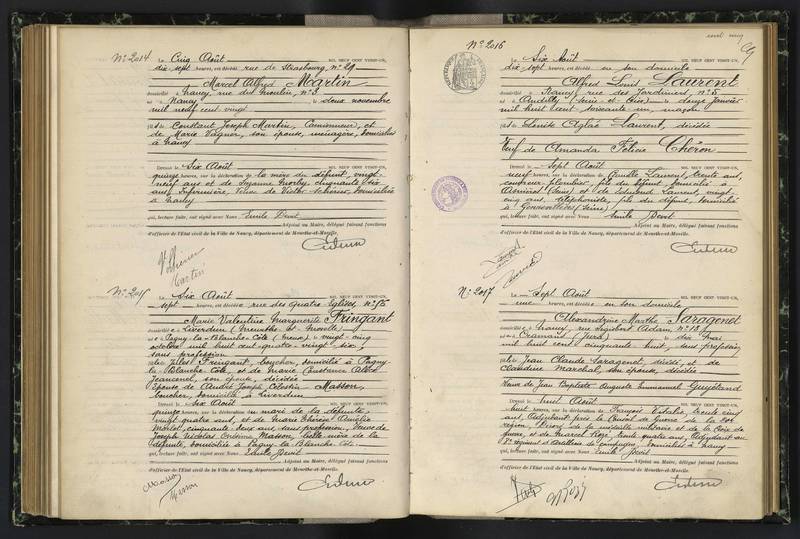 N° 2014
Le Cinq Août MIL NEUF CENT VINGT-UN,
dix sept heures, est décédé rue de Strasbourg, n° 29
Marcel Alfred Martin
domicilié à Nancy rue du Moulin, n° 3
né à Nancy le deux novembre
mil neuf cent vingt
fils de Constant Joseph Martin, Camionneur, et
de Marie Vagner, son épouse, ménagère, domiciliés
à Nancy
Dressé le Six Août MIL NEUF CENT VINGT-UN,
quinze heures, sur la déclaration de la mère du défunt, vingt-
neuf ans et de Suzanne cinquante six
ans, Infirmière, domiciliée
à Nancy
qui, lecture faite, ont signé avec Nous Emile Devit
Adjoint au Maire, délégué faisant fonctions
d'officier de l'Etat civil de la Ville de Nancy, département de Meurthe-et-Moselle.
Martin
N° 2015
Le Six Août MIL NEUF CENT VINGT-UN,
sept heures, est décédée rue des Quatre Eglises, n° 75
Marie Valentine Marguerite Fringant
domiciliée à Liverdun (Meurthe et Moselle)
née à Pagny-la-Blanche-Côte (Meuse) le vingt-cinq
octobre mil huit cent quatre-vingt six,
sans profession
fille de Jules Fringant, boucher, domicilié à Pagny-
la-Blanche Côte, et de Marie Constance
Jeancenel, son épouse, décédée
Epouse de André Joseph Célestin Masson,
boucher, domicilié à Liverdun
Dressé le Six Août MIL NEUF CENT VINGT-UN,
quinze heures, sur la déclaration du mari de la défunte,
vingt quatre ans, et de Marie Thérèse
cinquante deux ans, sans profession, Veuve de
Joseph Nicolas Masson, belle-mère de la
défunte, domiciliée à Pagny-la-Blanche-Côte
qui, lecture faite, ont signé avec Nous Emile Devit
Adjoint au Maire, délégué faisant fonctions
d'officier de l'Etat civil de la Ville de Nancy, département de Meurthe-et-Moselle.
Masson
Masson
N° 2016
Le Six Août MIL NEUF CENT VINGT-UN,
dix sept heures, est décédé en son domicile
Alfred Louis Laurent
domicilié à Nancy, rue des Jardiniers, n° 5
né à Andilly (Seine et Oise) le douze janvier
mil huit cent soixante un, maçon
fils de Laurent, décédée
Veuf de Amanda Félicie Chéron
Dressé le Sept Août MIL NEUF CENT VINGT-UN,
neuf heures, sur la déclaration de Camille Laurent, trente ans,
couvreur plombier, fils du défunt, domicilié à
Asnières (Seine) et de Laurent, vingt
cinq ans, téléphoniste, fils du défunt, domicilié
à Gennevilliers (Seine)
qui, lecture faite, ont signé avec Nous Emile Devit
Adjoint au Maire, délégué faisant fonctions
d'officier de l'Etat civil de la Ville de Nancy, département de Meurthe-et-Moselle.
N° 2017
Le Sept Août MIL NEUF CENT VINGT-UN,
une heures, est décédée en son domicile
Alexandrine Marthe Saragenet
domiciliée à Nancy, rue Sigisbert Adam, n° 18
née à Cramant (Jura) le dix mai
mil huit cent cinquante huit, sans profession
fille de Jean Claude Saragenet, décédé, et de
Claudine Maréchal, son épouse, décédée
Veuve de Jean Baptiste Auguste Emmanuel Guyétand
Dressé le huit Août MIL NEUF CENT VINGT-UN,
huit heures, sur la déclaration de François trente cinq
ans, Adjudant près le Conseil de Guerre de la 20e
région, Décoré de la médaille militaire et de la Croix de
guerre, et de Marcel Rozé, trente quatre ans, Adjudant au
8e Régiment d'Artillerie de Campagne, domiciliés à Nancy
qui, lecture faite, ont signé avec Nous Emile Devit
Adjoint au Maire, délégué faisant fonctions
d'officier de l'Etat civil de la Ville de Nancy, département de Meurthe-et-Moselle.